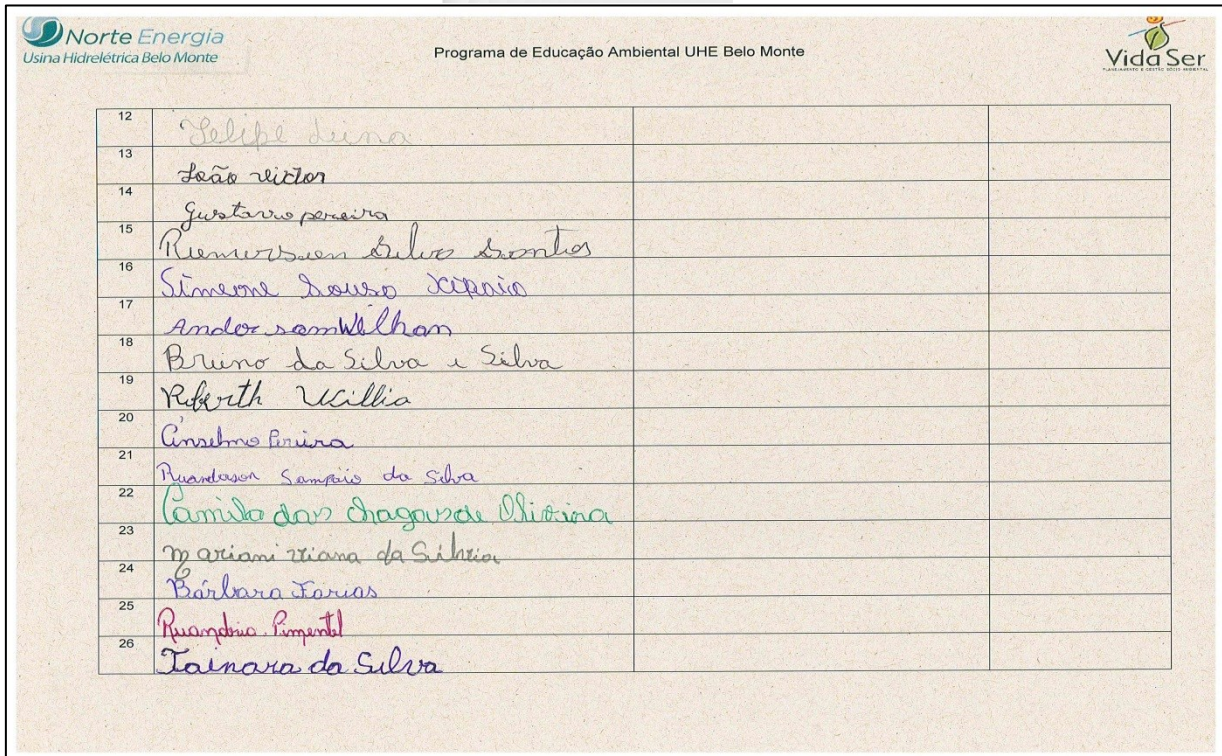 Norte Energia
Usina Hidrelétrica Belo Monte
Programa de Educação Ambiental UHE Belo Monte
Vida Ser
12 Felipe Luna
13 João Victor
14 Gustavo pereira
15 Silva Santos
16 Simeone Souza Xipaia
17 Anderson Wilhan
18 Bruno da Silva e Silva
19 Roberth Willia
20 Anselmo Pereira
21 Ruanderson Sampaio da Silva
22 Camila das chagas de Oliveira
23 Mariani viana da Silveira
24 Bárbara Farias
25 Pimentel
26 Tainara da Silva